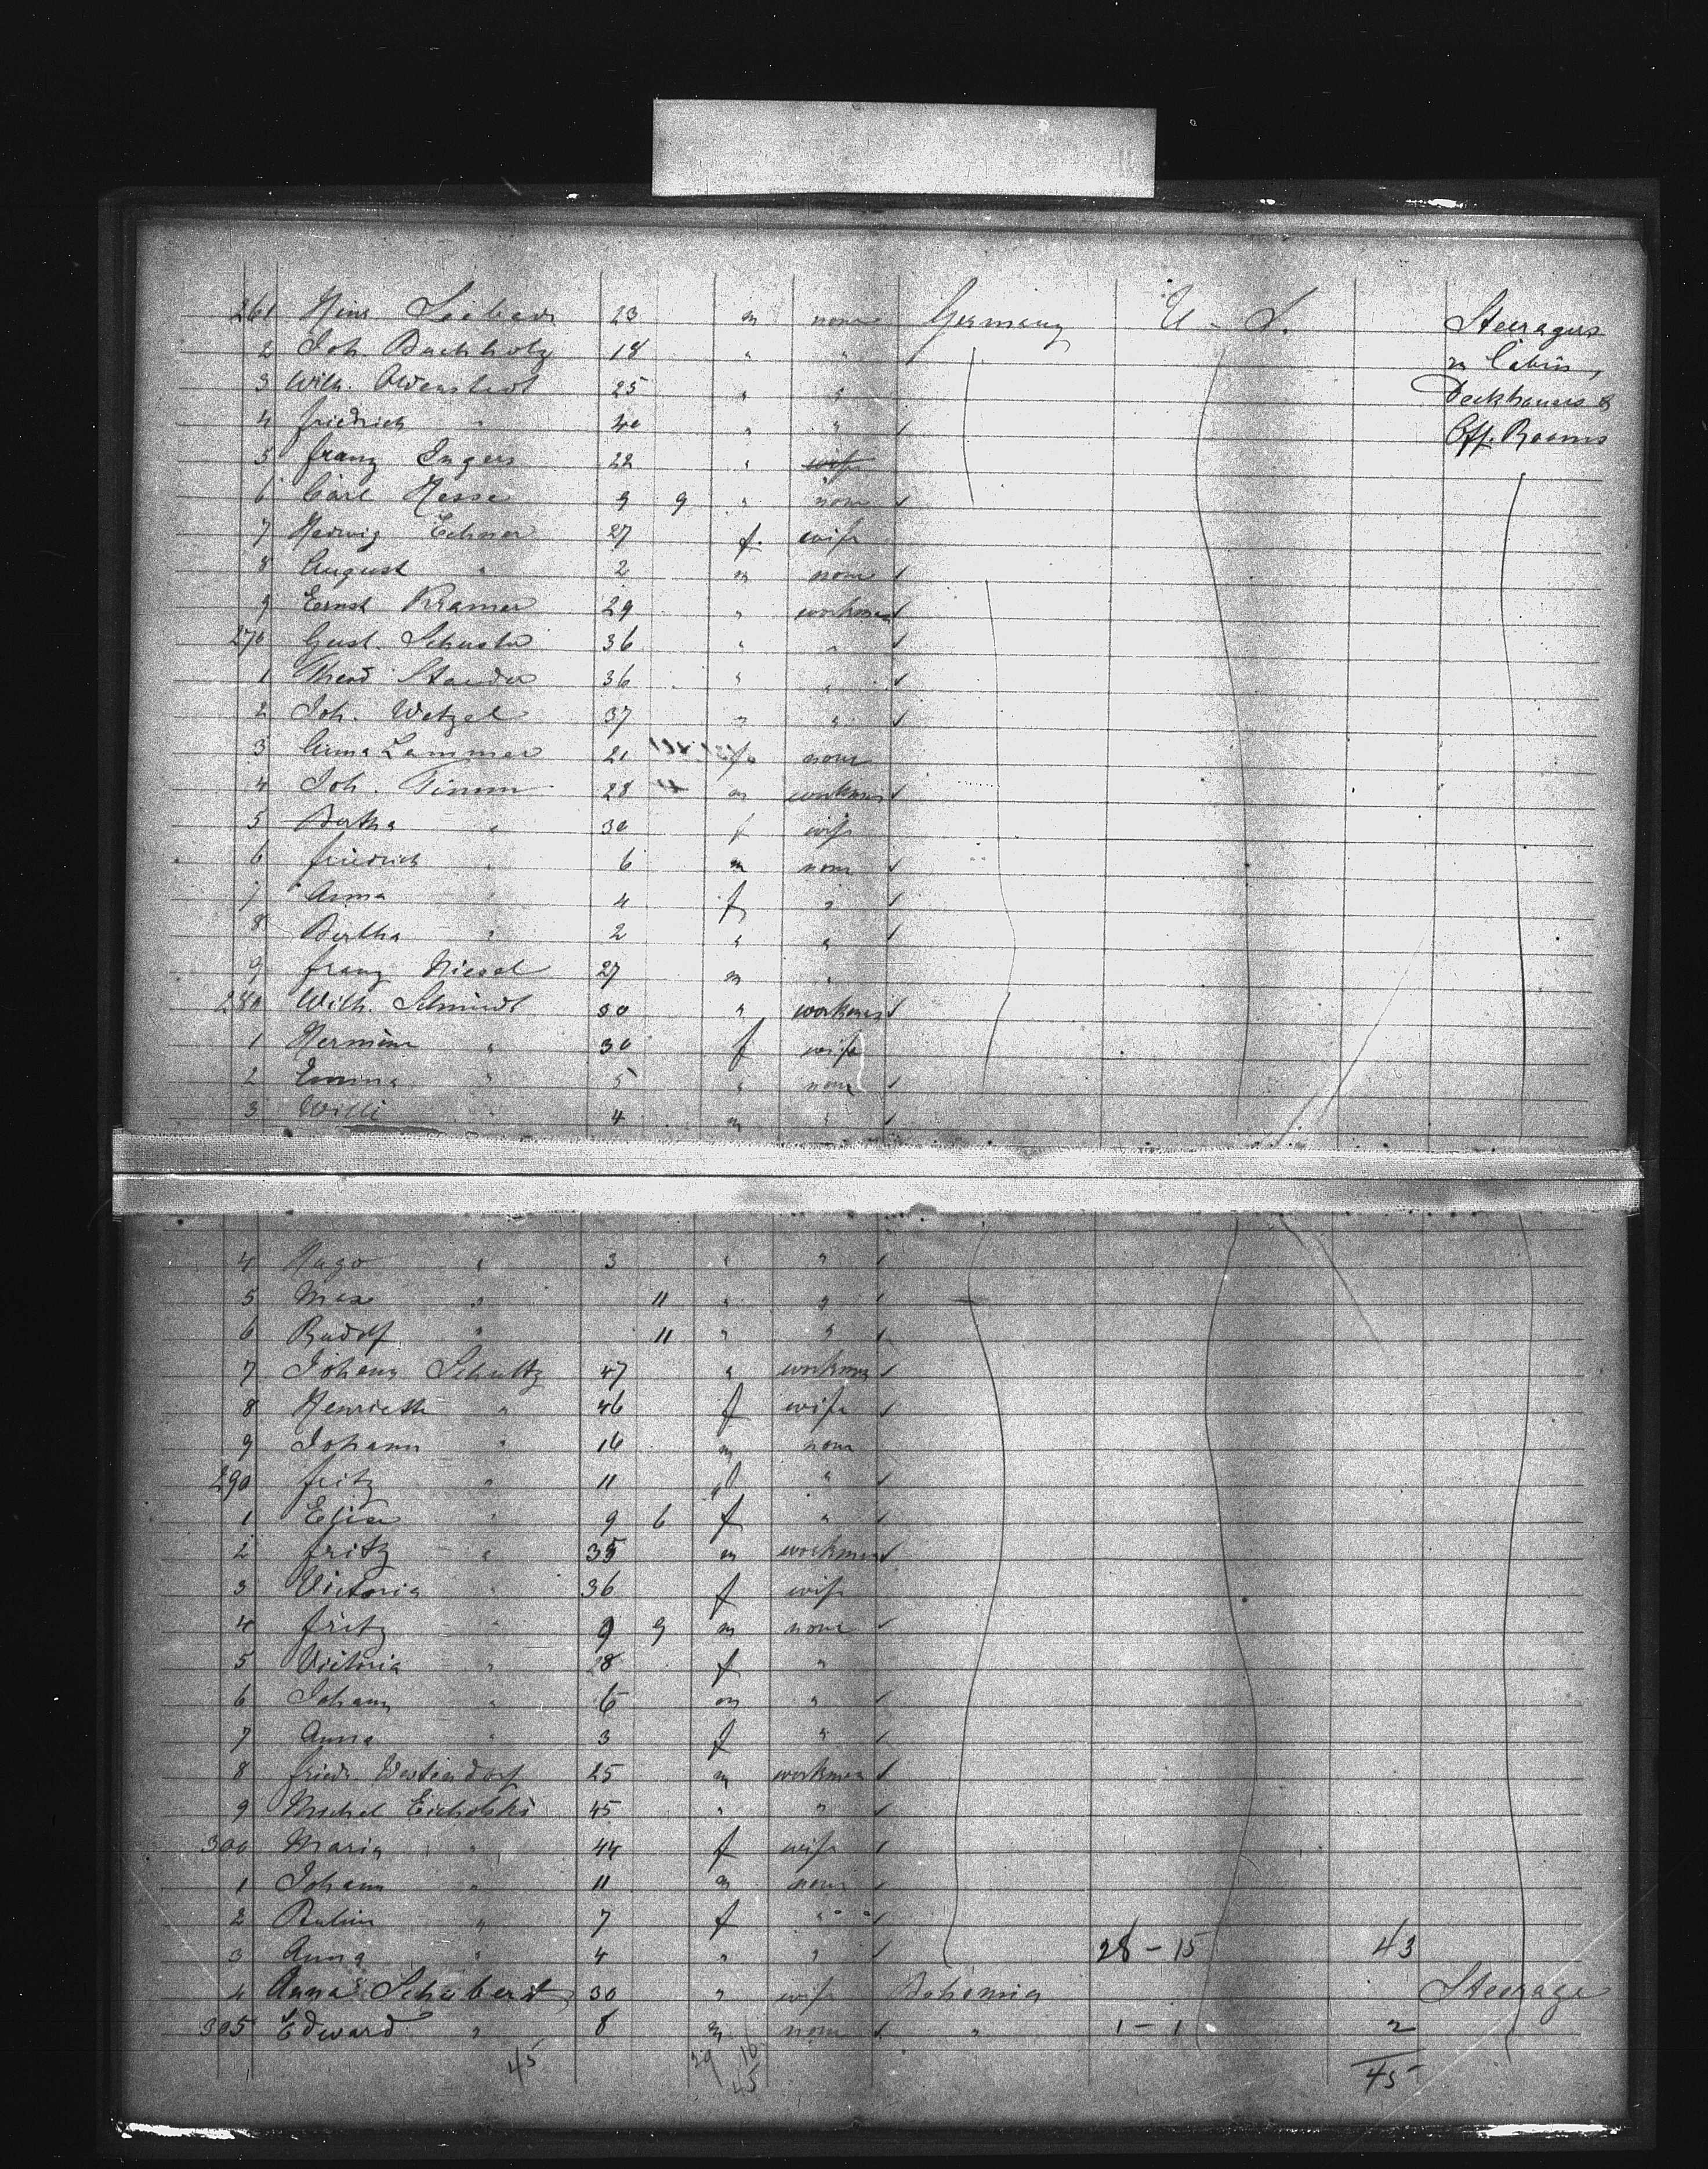 261 Hinr 23 m none Germany U - S. Steeragers
2 Joh. Buchholz 18 " " in Cabins,
3 Wilh. 25 " " Deckhouses &
4 Friedrich " 40 " " ✓ Off. Rooms
5 Franz Ingers 22 " wife
6 Carl Hesse 9 9 " none ✓
7 Hedwig 27 f. wife
8 August " 2 m none ✓
9 Ernst Kramer 29 " workman ✓
270 Gust. Schuster 36 " " ✓
1 36 " " ✓
2 Joh. Wetzel 37 " " ✓
3 Anna Lammer 21 f none
4 Joh. Timm 28 m workman ✓
5 Bertha " 30 f wife
6 Friedrich " 6 m none ✓
7 Anna " 4 f " ✓
8 Bertha " 2 " " ✓
9 Franz 27 m "
280 Wilh. Schmidt 30 " workman ✓
1 Hermine " 30 f wife
2 Emma " 5 " none ✓
3 Willi " 4 m " ✓
4 Hugo " 3 " " ✓
5 Max " 11 " " ✓
6 Rudolf " 11 " " ✓
7 Johann Schultz 47 " workman ✓
8 Henriette " 46 f wife ✓
9 Johann " 16 m none
290 Fritz " 11 " ✓
1 " 9 6 f " ✓
2 Fritz " 35 m workman ✓
3 Victoria " 36 f wife
4 Fritz " 9 9 m none ✓
5 Victoria " 8 f "
6 Johann " 6 m " ✓
7 Anna " 3 f " ✓
8 Friedr. Westendorf 25 m workman ✓
9 Michel 45 " " ✓
300 Maria " 44 f wife ✓
1 Johann " 11 m none ✓
2 " 7 f " ✓
3 Anna " 4 " " ✓ 28 - 15 43
4 Anna Schubert 30 " wife Bohemia Steerage
305 Edward " 8 m none ✓ " 1 - 1 2
45 29 16 45
45